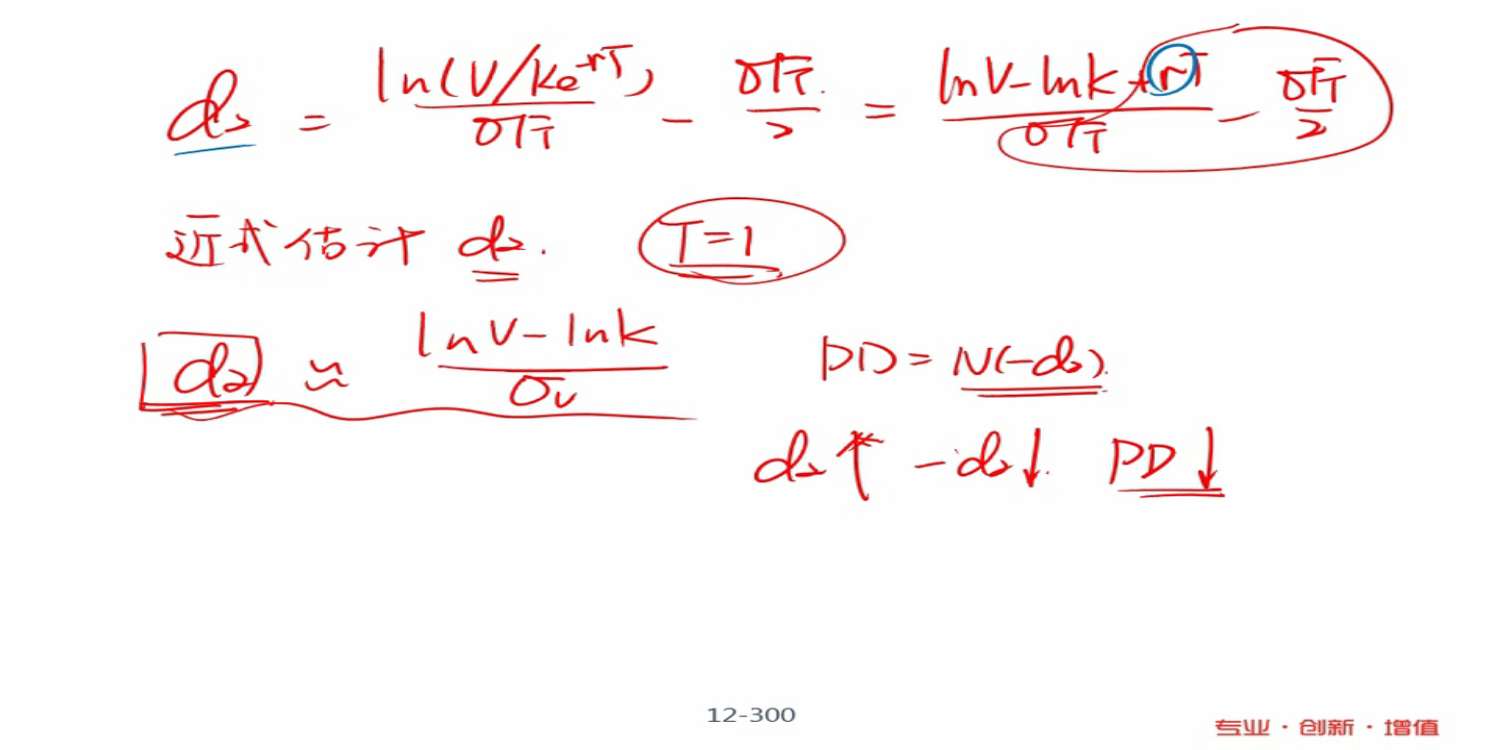 d₂ = ln(V/Ke^-rT) / σ√T - σ√T / 2 = lnV-lnK+rT / σ√T - σ√T / 2
近式估计 d₂. T=1
d₂ ≈ lnV-lnK / σv
PD = N(-d₂).
d₂↑ -d₂↓. PD↓
12-300
专业·创新·增值